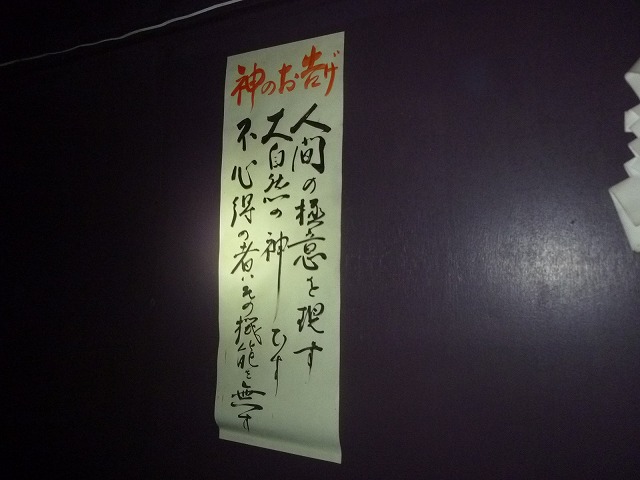 神のお告げ
人間の極意を現す
大自然の神 です
不心得の者はその機能を無す